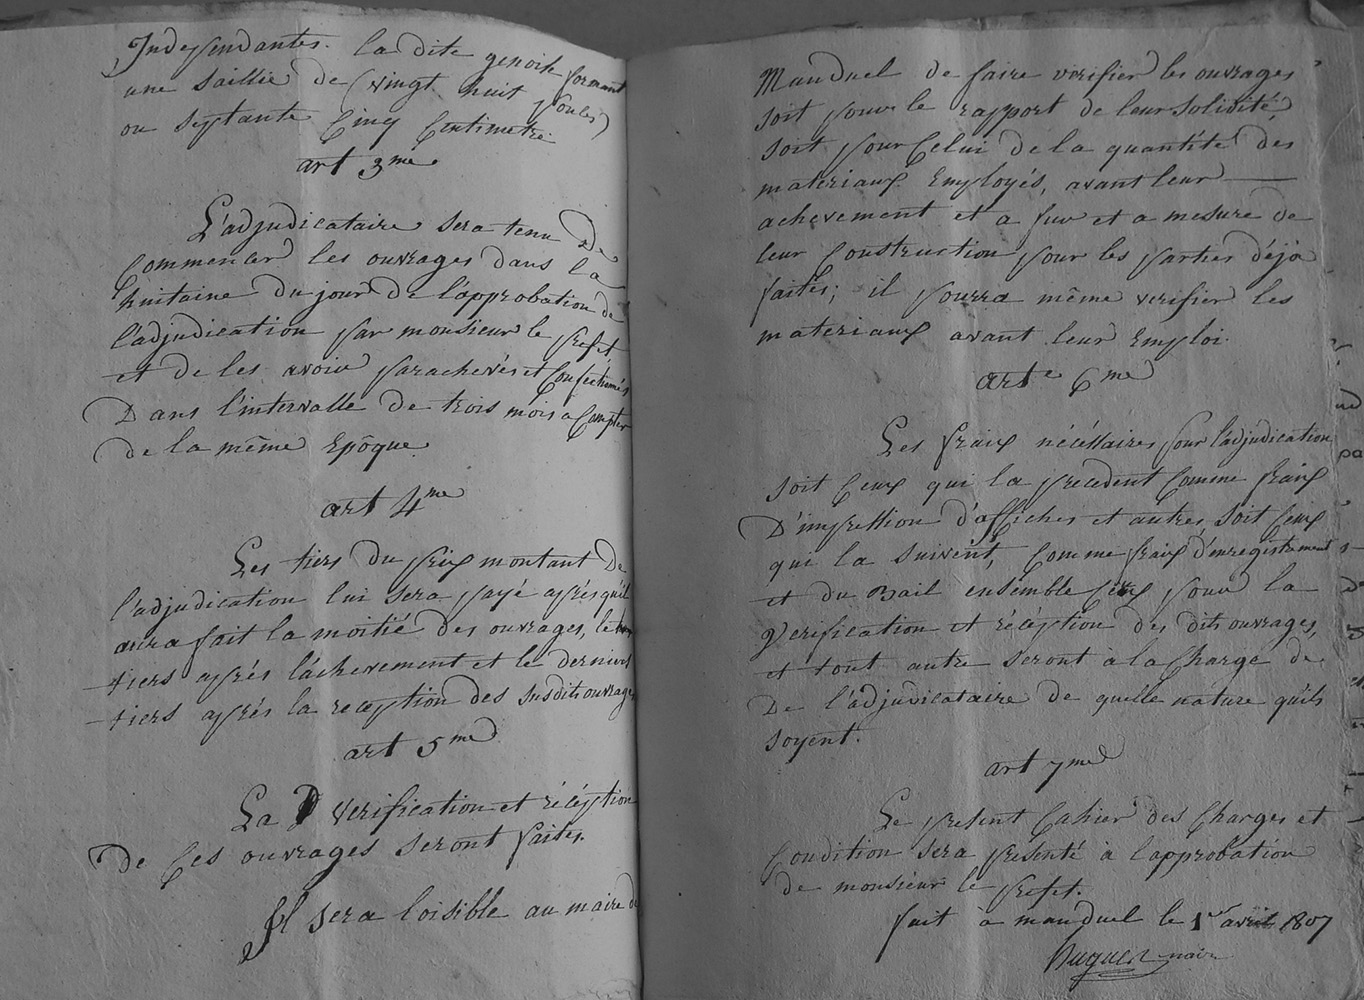 Independantes. la dite genoise formant
une saillie de vingt huit pouces
ou septante Cinq Centimetre.
art 3me
L'adjudicataire sera tenu De
Commencer les ouvrages dans la
huitaine du jour De l'approbation de
l'adjudication par monsieur le prefet
et de les avoir parachevés et Confectionnés
Dans l'intervalle De trois mois a Compter
de la même Epôque
art 4me
Les tiers du prix montant De
l'adjudication lui sera payé aprés qu'il
aura fait la moitié des ouvrages, le
tiers aprés l'achevement et le dernier
tiers aprés la reception des susdits ouvrages
art 5me
La verification et récéption
De Ces ouvrages seront faites.
Il sera loisible au maire de
Manduel de faire verifier les ouvrages
soit pour le rapport de leur solidité,
soit pour Celui de la quantité des
materiaux Employés, avant leur
achevement et a fur et a mesure de
leur Construction pour les parties déja
faites; il pourra même verifier les
materiaux avant leur Emploi.
arte 6me
Les fraix nécéssaires pour l'adjudication
soit Ceux qui la precedent Comme fraix
D'impression d'affiches et autres, soit Ceux
qui la suivent, Comme fraix d'enregistrement
et du Bail ensemble Ceux pour la
Verification et récéption des dits ouvrages,
et tout autre seront à la Charge de
De l'adjudicataire de quelle nature qu'ils
soyent.
art 7me
Le present Cahier des Charges et
Condition sera presenté à l'approbation
de monsieur le prefet.
fait à manduel le 1er avril 1807
maire